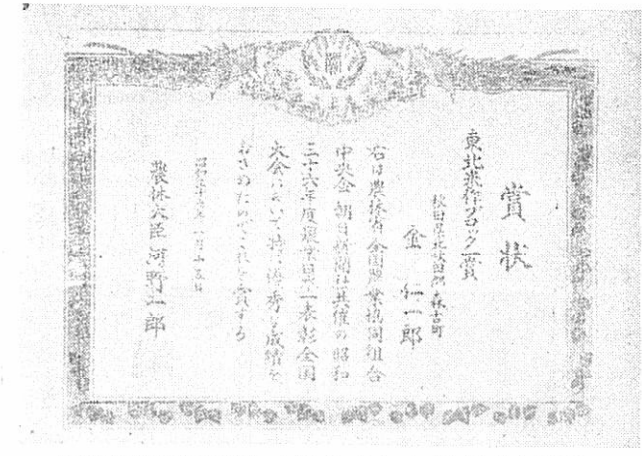 賞状
東北米作ブロック一賞
秋田県北秋田郡森吉町
金 仁一郎
右は農林省全国農業協同組合
中央会朝日新聞社共催の昭和
三十六年度農業日本一表彰全国
大会において特に優秀な成績を
おさめたのでこれを賞する
昭和 年 月十五日
農林大臣河野一郎